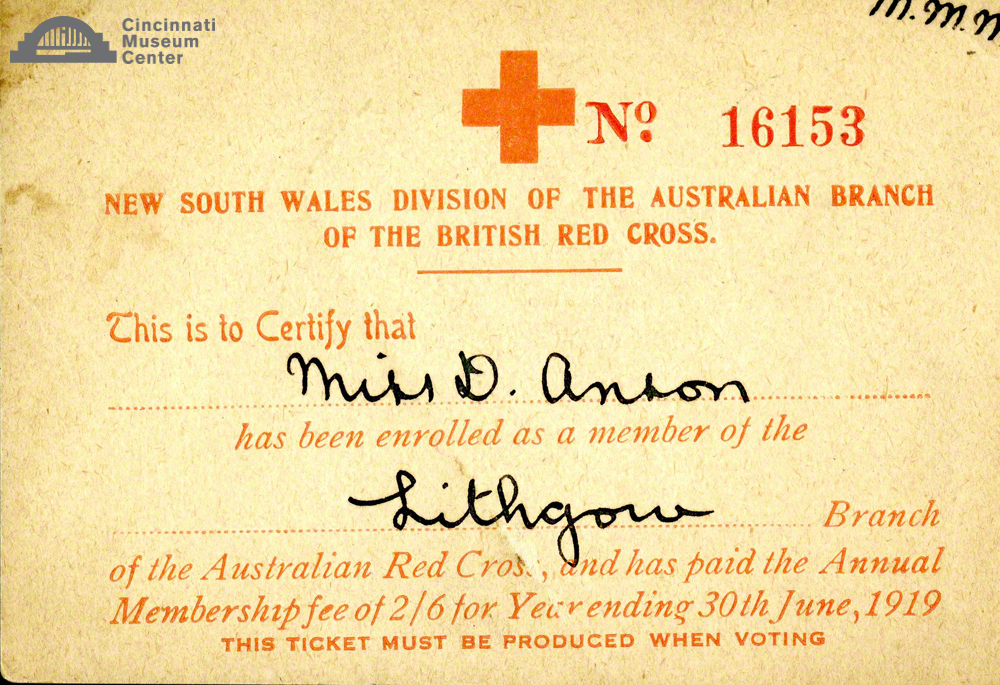 Cincinnati
Museum
Center
M. M. M
No. 16153
NEW SOUTH WALES DIVISION OF THE AUSTRALIAN BRANCH
OF THE BRITISH RED CROSS.
This is to Certify that
Miss D. Anson
has been enrolled as a member of the
Lithgow Branch
of the Australian Red Cross, and has paid the Annual
Membership fee of 2/6 for Year ending 30th June, 1919
THIS TICKET MUST BE PRODUCED WHEN VOTING